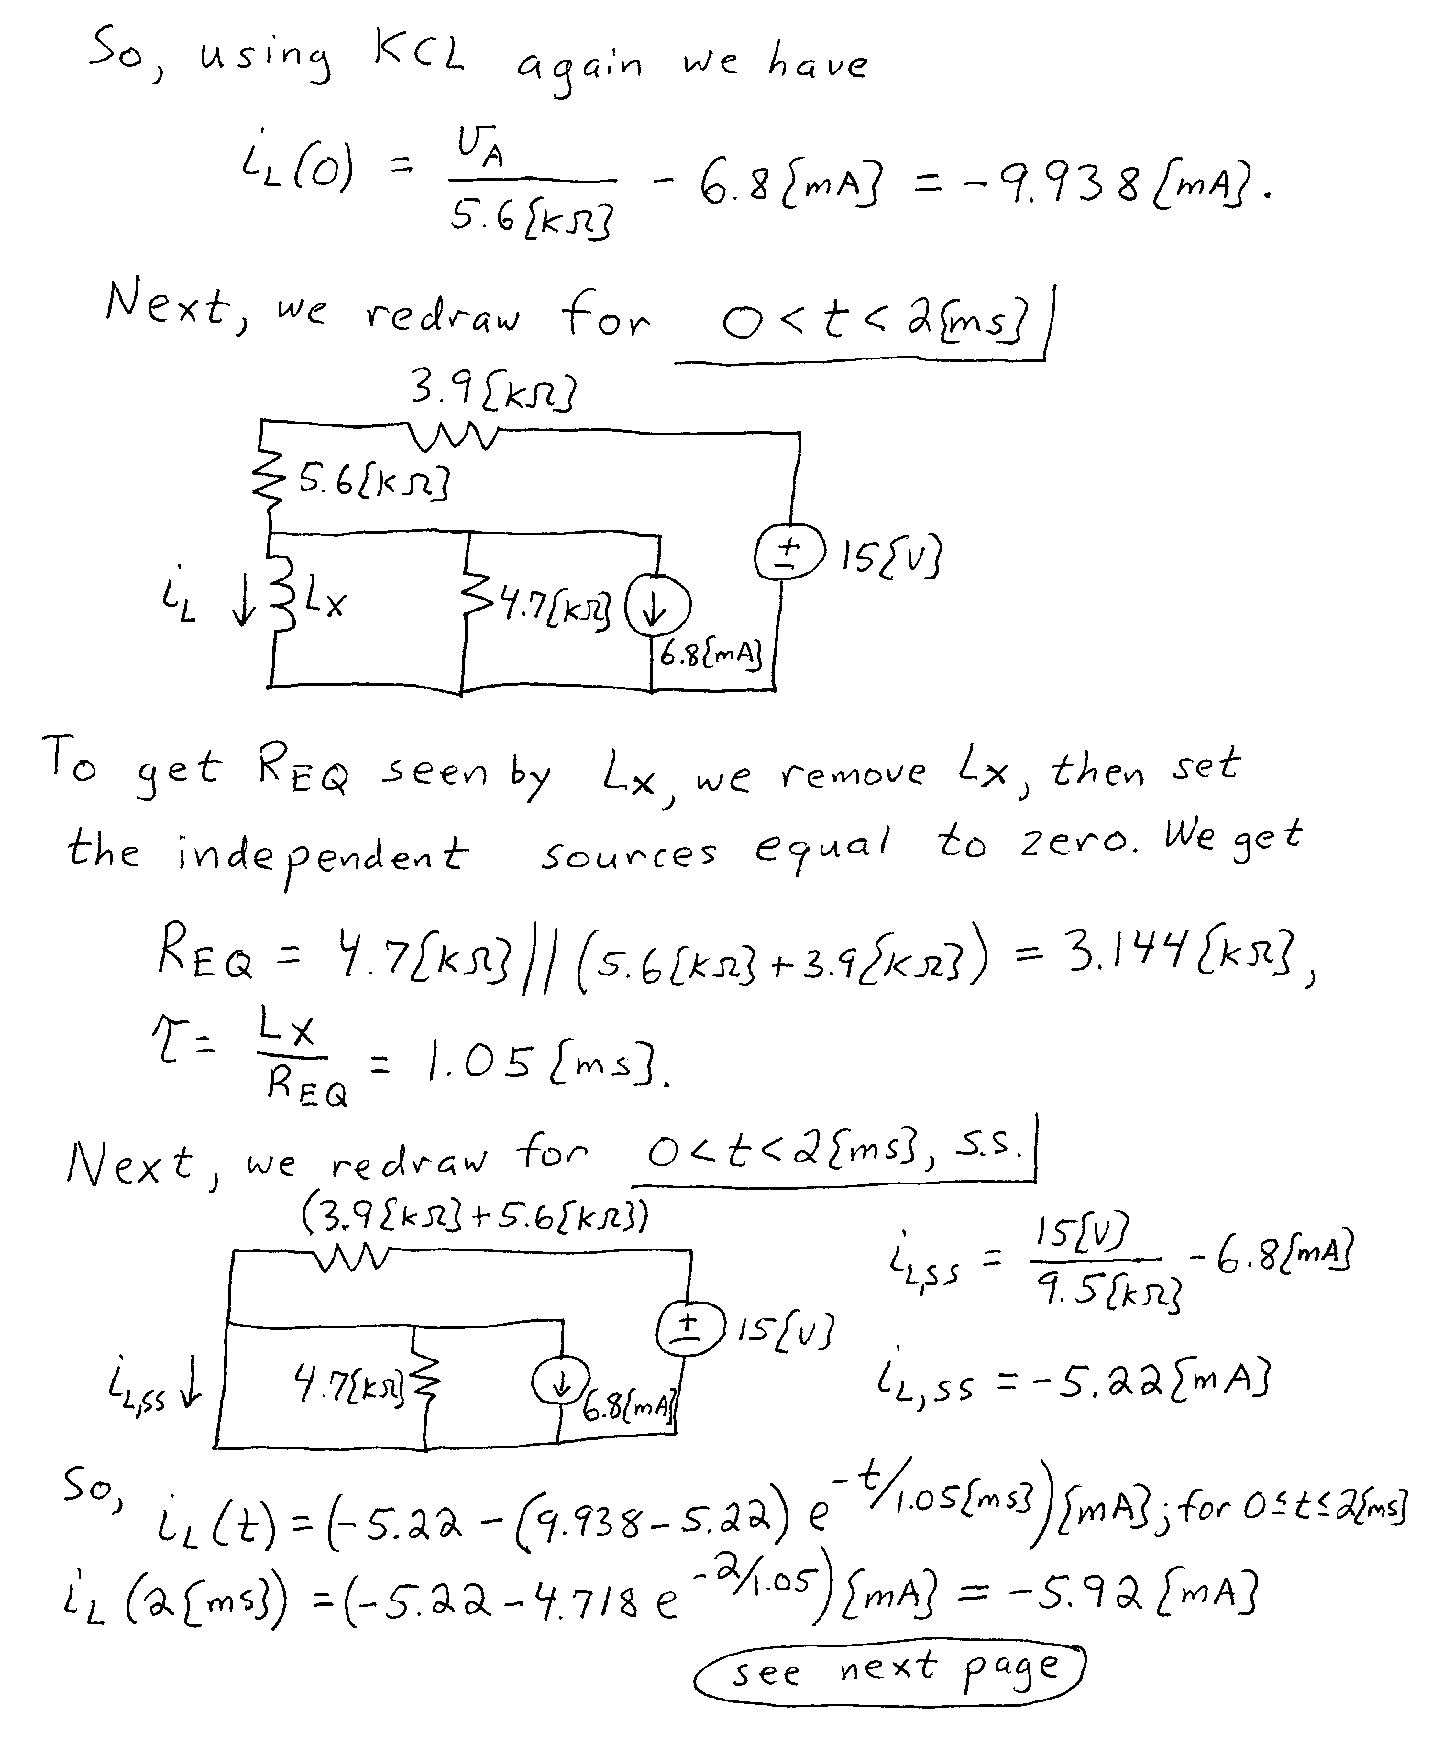 So, using KCL again we have
i_L(0) = v_A / 5.6[kΩ] - 6.8[mA] = -9.938[mA].
Next, we redraw for 0<t<2[ms]
3.9[kΩ]
5.6[kΩ]
15[V]
i_L ↓ L_X
4.7[kΩ]
6.8[mA]
To get R_EQ seen by L_X, we remove L_X, then set
the independent sources equal to zero. We get
R_EQ = 4.7[kΩ] || (5.6[kΩ]+3.9[kΩ]) = 3.144[kΩ],
τ = L_X / R_EQ = 1.05[ms].
Next, we redraw for 0<t<2[ms], s.s.
(3.9[kΩ]+5.6[kΩ])
i_L,ss = 15[V] / 9.5[kΩ] - 6.8[mA]
15[V]
i_L,ss ↓
4.7[kΩ]
6.8[mA]
i_L,ss = -5.22[mA]
So, i_L(t) = (-5.22 - (9.938-5.22) e^-t/1.05[ms])[mA]; for 0≤t≤2[ms]
i_L(2[ms]) = (-5.22 - 4.718 e^-2/1.05)[mA] = -5.92[mA]
see next page